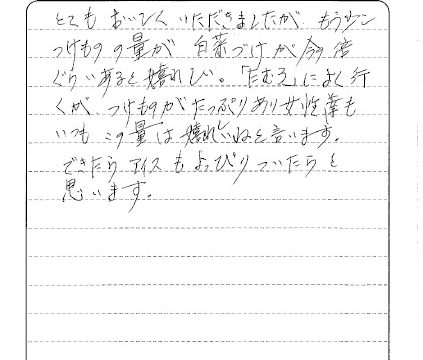 とてもおいしくいただきましたが、もう少し
つけものの量が白菜づけが今の倍
ぐらいあると嬉しい。「たむろ」によく行
くが、つけものがたっぷりあり女性達も
いつもこの量は嬉しいねと言います。
できたらアイスもよっぴりついたらと
思います。